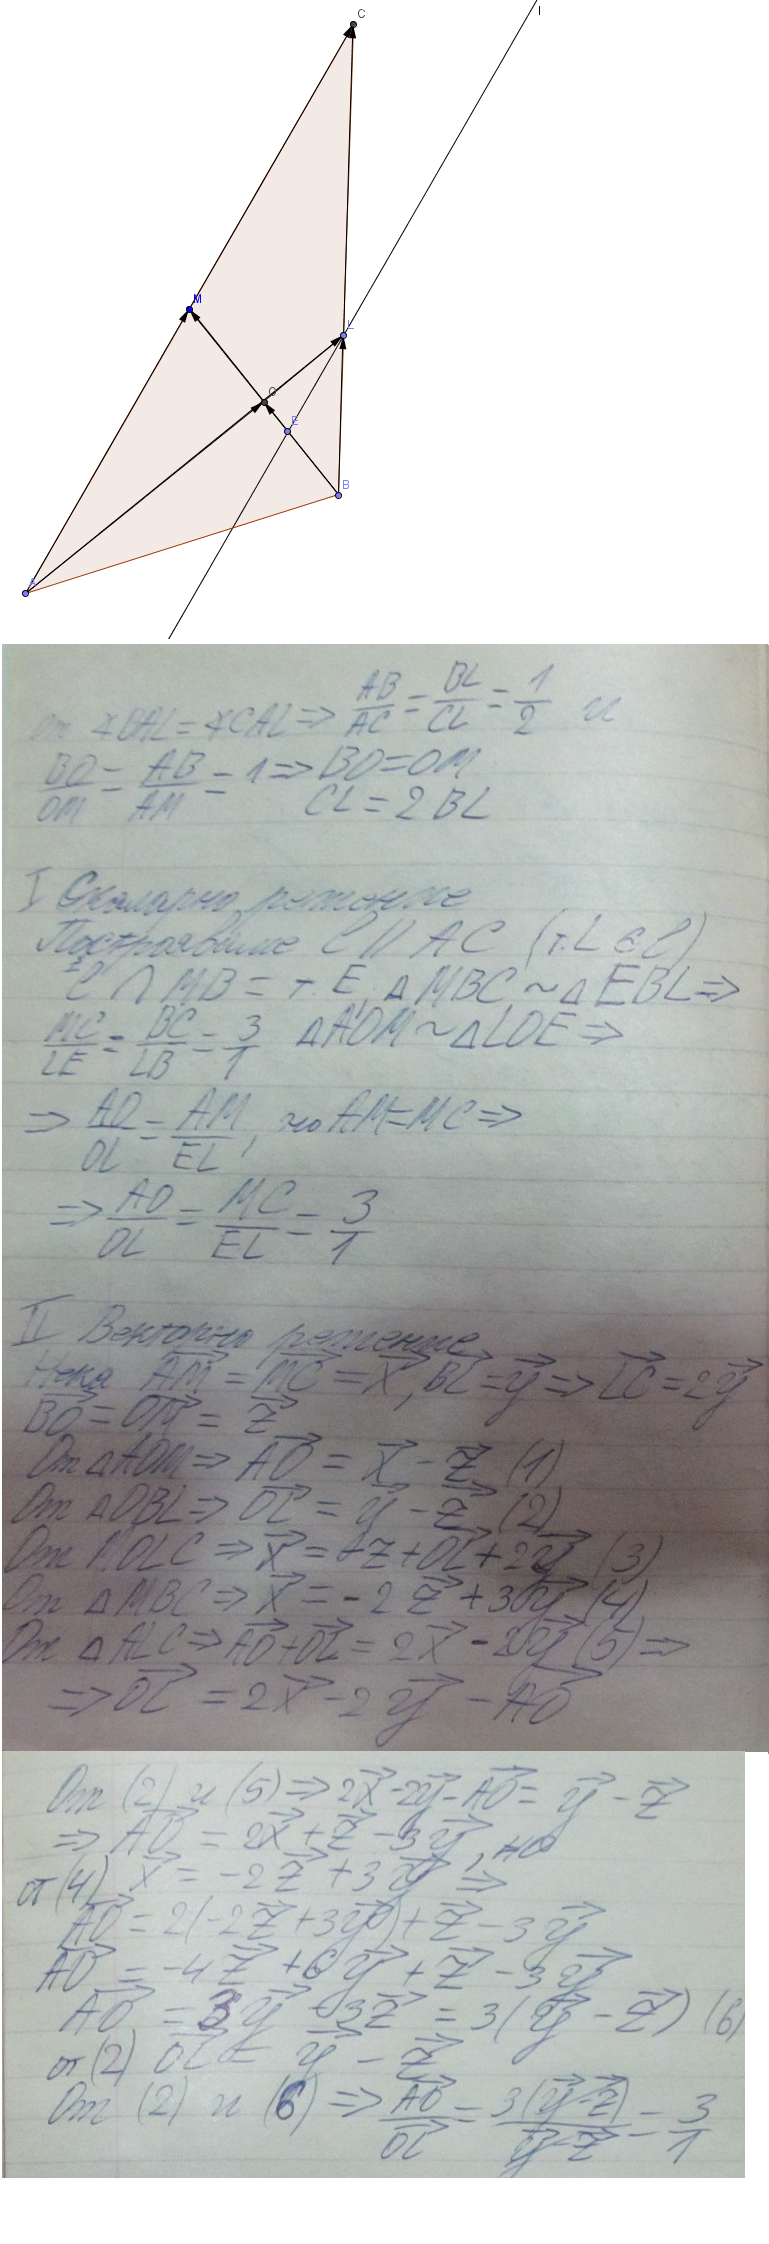 C
l
M
L
O
E
B
A
От ∢BAL = ∢CAL ⇒ AB/AC = BL/CL = 1/2 и
BO/OM = AB/AM = 1 ⇒ BO = OM
CL = 2BL
I Скаларно решение
Построяваме ℓ || AC (т. L ∈ ℓ)
ℓ ∩ MB = т. E, △MBC ~ △EBL ⇒
MC/LE = BC/LB = 3/1 △AOM ~ △LOE ⇒
⇒ AO/OL = AM/EL, но AM = MC ⇒
⇒ AO/OL = MC/EL = 3/1
II Векторно решение
Нека AM⃗ = MC⃗ = x⃗, BL⃗ = y⃗ ⇒ LC⃗ = 2y⃗
BO⃗ = OM⃗ = z⃗
От △AOM ⇒ AO⃗ = x⃗ - z⃗ (1)
От △OBL ⇒ OL⃗ = y⃗ - z⃗ (2)
От MOLC ⇒ x⃗ = -z⃗ + OL⃗ + 2y⃗ (3)
От △MBC ⇒ x⃗ = -2z⃗ + 3y⃗ (4)
От △ALC ⇒ AO⃗ + OL⃗ = 2x⃗ - 2y⃗ (5) ⇒
⇒ OL⃗ = 2x⃗ - 2y⃗ - AO⃗
От (2) и (5) ⇒ 2x⃗ - 2y⃗ - AO⃗ = y⃗ - z⃗
⇒ AO⃗ = 2x⃗ + z⃗ - 3y⃗, но
от (4) x⃗ = -2z⃗ + 3y⃗ ⇒
AO⃗ = 2(-2z⃗ + 3y⃗) + z⃗ - 3y⃗
AO⃗ = -4z⃗ + 6y⃗ + z⃗ - 3y⃗
AO⃗ = 3y⃗ - 3z⃗ = 3(y⃗ - z⃗) (6)
от (2) OL⃗ = y⃗ - z⃗
От (2) и (6) ⇒ AO⃗/OL⃗ = 3(y⃗ - z⃗)/y⃗ - z⃗ = 3/1